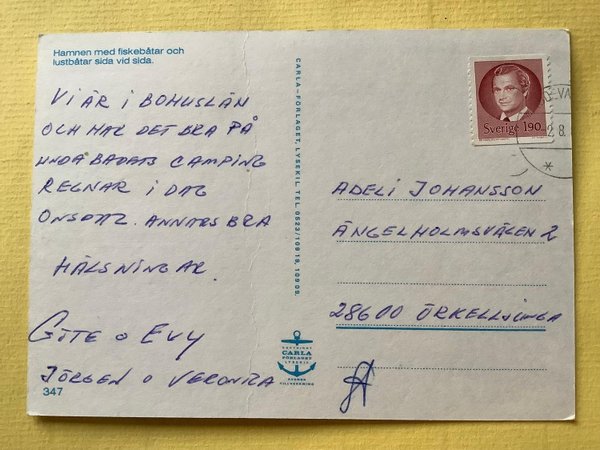 Hamnen med fiskebåtar och
lustbåtar sida vid sida.
VI ÄR I BOHUSLÄN
OCH HAR DET BRA PÅ
CAMPING
REGNAR I DAG
ONSDAG. ANNARS BRA
HÄLSNINGAR
GITE o EVY
JÖRGEN o VERONICA
347
CARLA-FÖRLAGET, LYSEKIL TEL. 0523/109 19, 109 09.
COPYRIGHT
CARLA
FÖRLAGET
LYSEKIL
SVENSK
TILLVERKNING
Sverige 190
28.
ADELI JOHANSSON
ÄNGELHOLMSVÄGEN 2
28600 ÖRKELLJUNGA